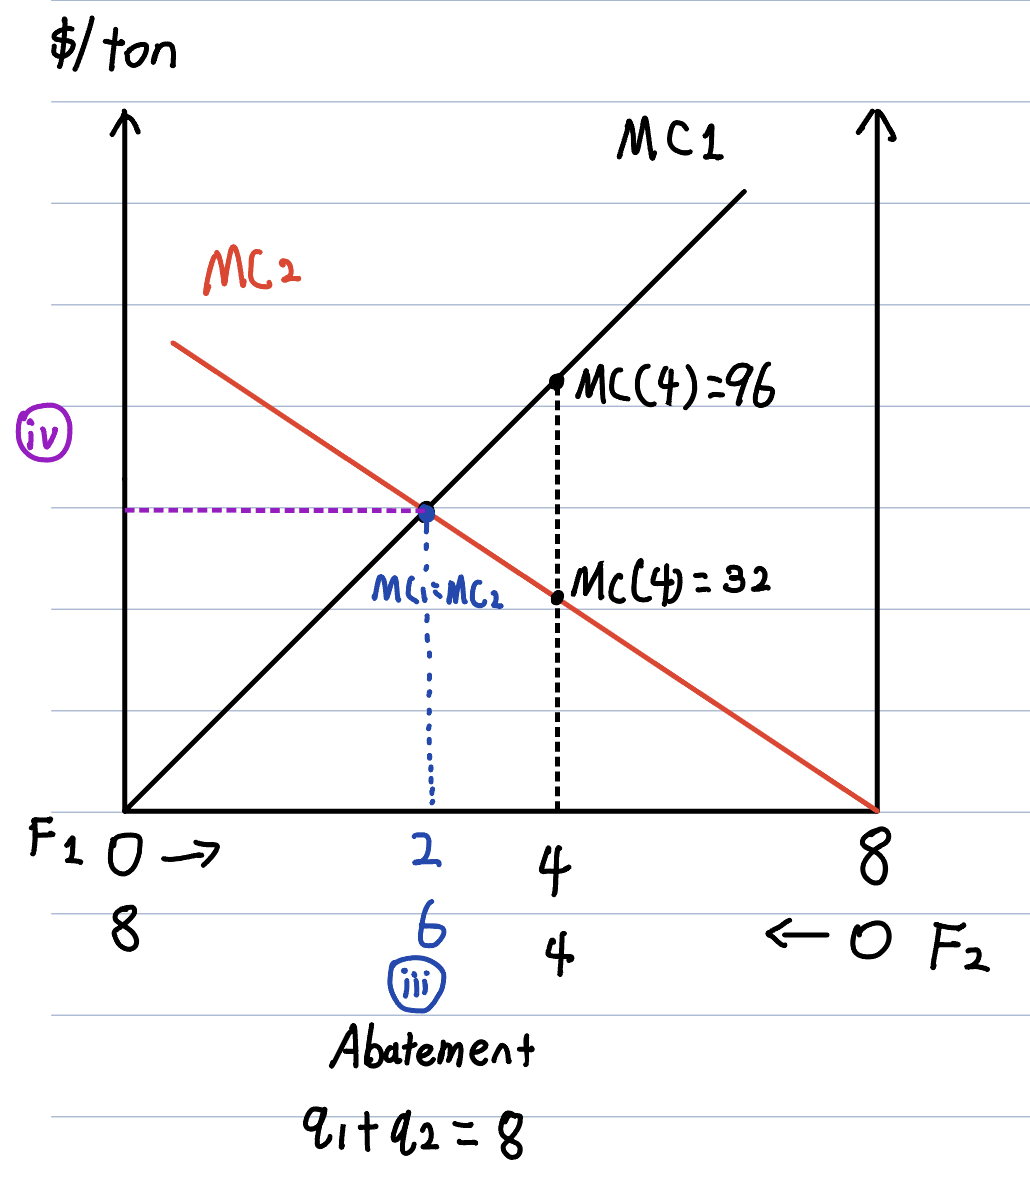 $/ton
MC1
MC2
MC(4)=96
iv
MC1=MC2
MC(4)=32
F1 0 → 2 4 8
8 6 4 ← 0 F2
iii
Abatement
q1+q2=8